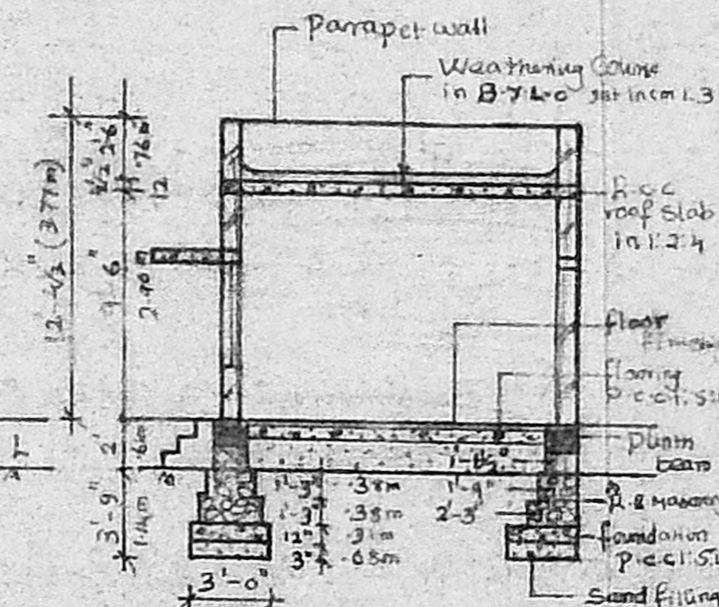 Parapet wall
Weathering Course
in B.J.L.C set in cm 1:3
R.C.C
roof slab
in 1:2:4
floor
finish
flooring
Plinth
beam
foundation
Sand filling
12'-4½" (3.77m)
2'-6"
.76m
4½"
.12
9'-6"
2.90m
2'
.6m
3'-9"
1.14m
1'-3" .38m
1'-3" .38m
12" .31m
3" .08m
1'-1½"
1'-9"
2'-3"
3'-0"